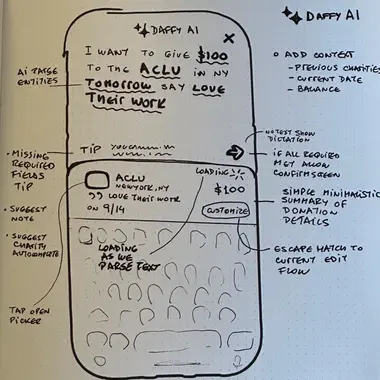 DAFFY AI
DAFFY AI
X
I WANT TO GIVE $100
TO THE ACLU IN NY
TOMORROW SAY LOVE
THEIR WORK
AI PARSE
ENTITIES
ADD CONTEXT
- PREVIOUS CHARITIES
- CURRENT DATE
- BALANCE
NO TEXT SHOW
DICTATION
TIP
• MISSING
REQUIRED
FIELDS
TIP
• SUGGEST
NOTE
• SUGGEST
CHARITY
AUTOCOMPLETE
TAP OPEN
PICKER
IF ALL REQUIRED
MET ALLOW
CONFIRM SCREEN
LOADING
ACLU
NEW YORK, NY
LOVE THEIR WORK
ON 9/14
$100
CUSTOMIZE
SIMPLE MINIMALISTIC
SUMMARY OF
DONATION
DETAILS
LOADING
AS WE
PARSE TEXT
ESCAPE HATCH TO
CURRENT EDIT
FLOW